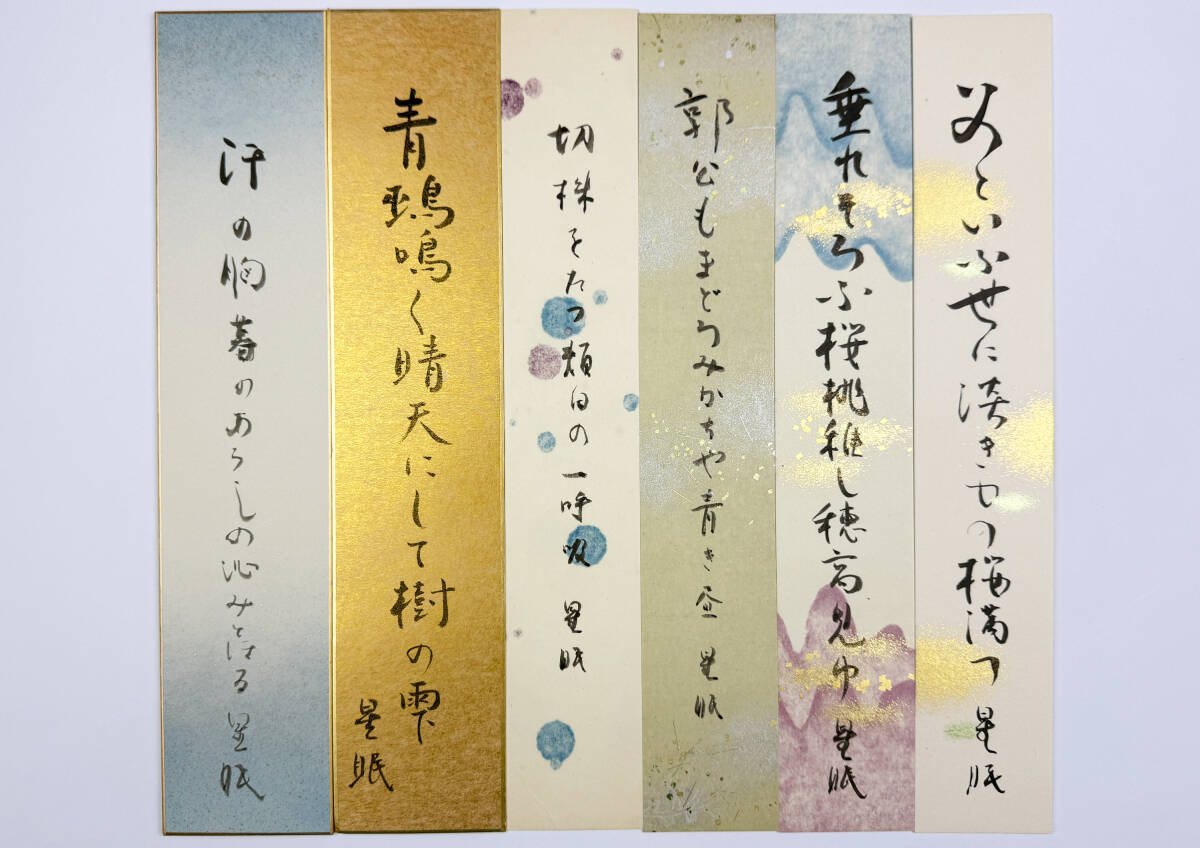 父といふ世に淡きもの桜満つ 星眠
垂れそろふ桜桃稚し穂高見ゆ 星眠
郭公もまどろみかちや青き昼 星眠
切株をたつ頬白の一呼吸 星眠
青鵐鳴く晴天にして樹の雫
星眠
汗の胸暮のあらしの沁みとほる 星眠